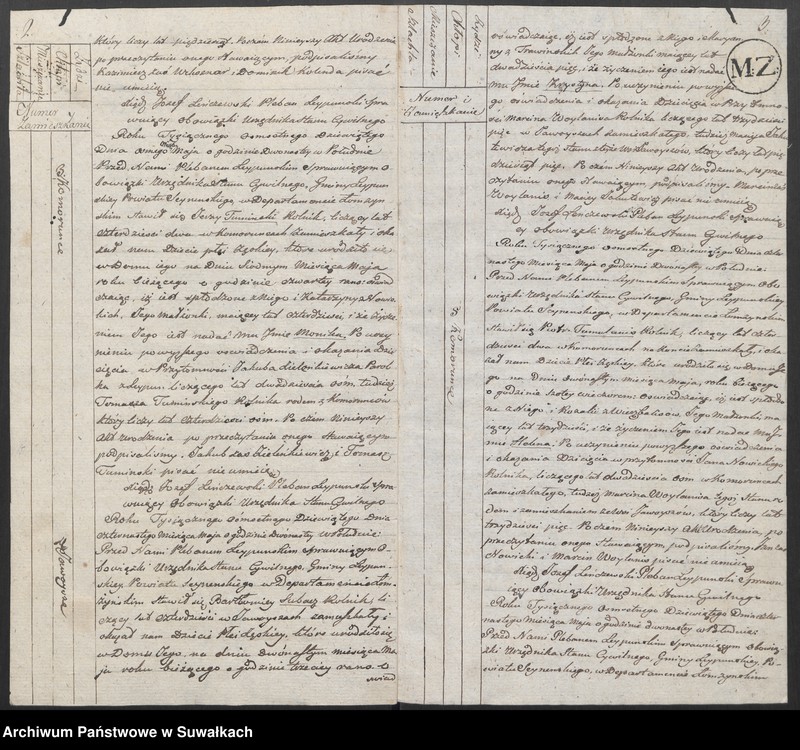 2.
Liczba
Chłopi
Mieszczanie
Szlachta
Numer i
Zamieszkanie
który liczy lat pięćdziesiąt. Poczem Ninieyszy Akt Urodzenia
po przeczytaniu onego Stawaiącym, podpisaliśmy
Kazimierz i Dominik pisać
nie umieią
Xiądz Józef Leśczewski Pleban Leypunski Spra-
wuiący Obowiązki Urzędnika Stanu Cywilnego
Roku Tysiącznego Osmsetnego Dziewiątego
Dnia osmego Maja o godzinie Dwonastey w Południe
Przed Nami Plebanem Leypunskim Sprawuiącym O-
bowiązki Urzędnika Stanu Cywilnego, Gminy Leypun-
skiey Powiatu Seynenskiego w Departamencie Łomzyn-
skim Stawił się Jerzy Tuminski Rolnik, liczący lat
czterdzieści dwa w Komoruncach zamieszkały i oka-
zał nam Dziecie płci Zęskiey, które urodziło się
w Domu iego na Dniu Siódmym Miesiąca Maja
roku bieżącego o godzinie czwartey rano. Oswiad-
czaiąc, iż iest spłodzone z Niego i Katarzyny z
Jego małżonki, maiącey lat czterdzieści, i że życze-
niem Jego iest nadać mu Jmie Monika. Po uczy-
nieniu powyższego oswiadczenia i okazania Dzie-
cięcia w Przytomności Jakuba Zielenkiewicza Parob-
ka z Leypun liczącego lat dwadzieścia osm, tudzież
Tomasza Tuminskiego Rolnika rodem z Komorunców
który liczy lat czterdzieści osm. Po czem Ninieyszy
Akt Urodzenia po przeczytaniu onego Stawaiącym
podpisaliśmy. Jakub Zielenkiewicz i Tomasz
Tuminski pisać nie umieią
Xiądz Józef Leśczewski Pleban Leypunski Spra-
wuiący Obowiązki Urzędnika Stanu Cywilnego
Roku Tysiącznego Osmsetnego Dziewiątego Dnia
czternastego Miesiąca Maja o godzinie Dwonastey w Południe
Przed Nami Plebanem Leypunskim Sprawuiącym O-
bowiązki Urzędnika Stanu Cywilnego, Gminy Leypun-
skiey Powiatu Seynenskiego w Departamencie Łom-
żynskim Stawił się Bartłomiey Subacz Rolnik li-
czący lat czterdzieści w Jaworyszach zamieszkały i
okazał nam Dziecie Płci Zęskiey, które urodziło się
w Domu Jego, na dniu Dwónastym miesiąca Ma-
ja roku bieżącego o godzinie trzeciey rano. O-
swiad
Komorunce
Jaworysze
3.
Chłopi
Mieszczanie
Szlachta
Numer i
Zamieszkanie
Komorunce
M.Z.
oswiadczaiąc, iż iest spłodzone z Niego i Katarzy-
ny z Jego małżonki maiącey lat
dwadzieścia pięć, i że życzeniem Jego iest nadać
mu Jmie Po uczynieniu powyższe-
go oswiadczenia i okazania Dziecięcia w Przytomno-
ści Marcina Woylaniisa Rolnika liczącego lat trzydzieści
pięć w Jaworyszach zamieszkałego, tudzież Macieja
w Jaworyszow, który liczy lat pięć-
dziesiąt pięć. Po czem Ninieyszy Akt Urodzenia, po prze-
czytaniu onego Stawaiącym, podpisaliśmy. Marcin
Woylanis i Maciey pisać nie umieią
Xiądz Józef Leśczewski Pleban Leypunski Sprawuią-
cy obowiązki Urzędnika Stanu Cywilnego
Roku Tysiącznego Osmsetnego Dziewiątego Dnia czter-
nastego Miesiąca Maja o godzinie Dwonastey w Południe
Przed Nami Plebanem Leypunskim Sprawuiącym Obo-
wiązki Urzędnika Stanu Cywilnego, Gminy Leypunskiey
Powiatu Seynenskiego, w Departamencie Łomzynskim
Stawił się Piotr Tumulanis Rolnik, liczący lat czter-
dzieści dwa w Komoruncach zamieszkały, i oka-
zał nam Dziecie Płci Zęskiey, które urodziło się w Domu Je-
go na Dniu Dwónastym Miesiąca Maja, roku bieżącego
o godzinie szostey wieczorem. Oswiadczaiąc, iż iest spłodzo-
ne z Niego i Rozalii Jego Małżonki, ma-
iącey lat trzydzieści, i że życzeniem Jego iest nadać mu J-
mie Helena. Po uczynieniu powyższego oswiadczenia
i okazania Dziecięcia w przytomności Jana Nowickiego
Rolnika, liczącego lat dwadzieścia osm w Komoruncach
zamieszkałego, tudzież Marcina Woylanisa
z Jaworyszow, który liczy lat
trzydzieści pięć. Po czem Ninieyszy Akt Urodzenia, po
przeczytaniu onego Stawaiącym, podpisaliśmy. Jan
Nowicki i Marcin Woylanis pisać nie umieią
Xiądz Józef Leśczewski Pleban Leypunski Sprawu-
iący Obowiązki Urzędnika Stanu Cywilnego
Roku Tysiącznego Osmsetnego Dziewiątego Dnia czter-
nastego Miesiąca Maja o godzinie dwonastey w Południe
Przed Nami Plebanem Leypunskim Sprawuiącym Obowią-
zki Urzędnika Stanu Cywilnego, Gminy Leypunskiey, Po-
wiatu Seynenskiego, w Departamencie Łomzynskim
Archiwum Państwowe w Suwałkach